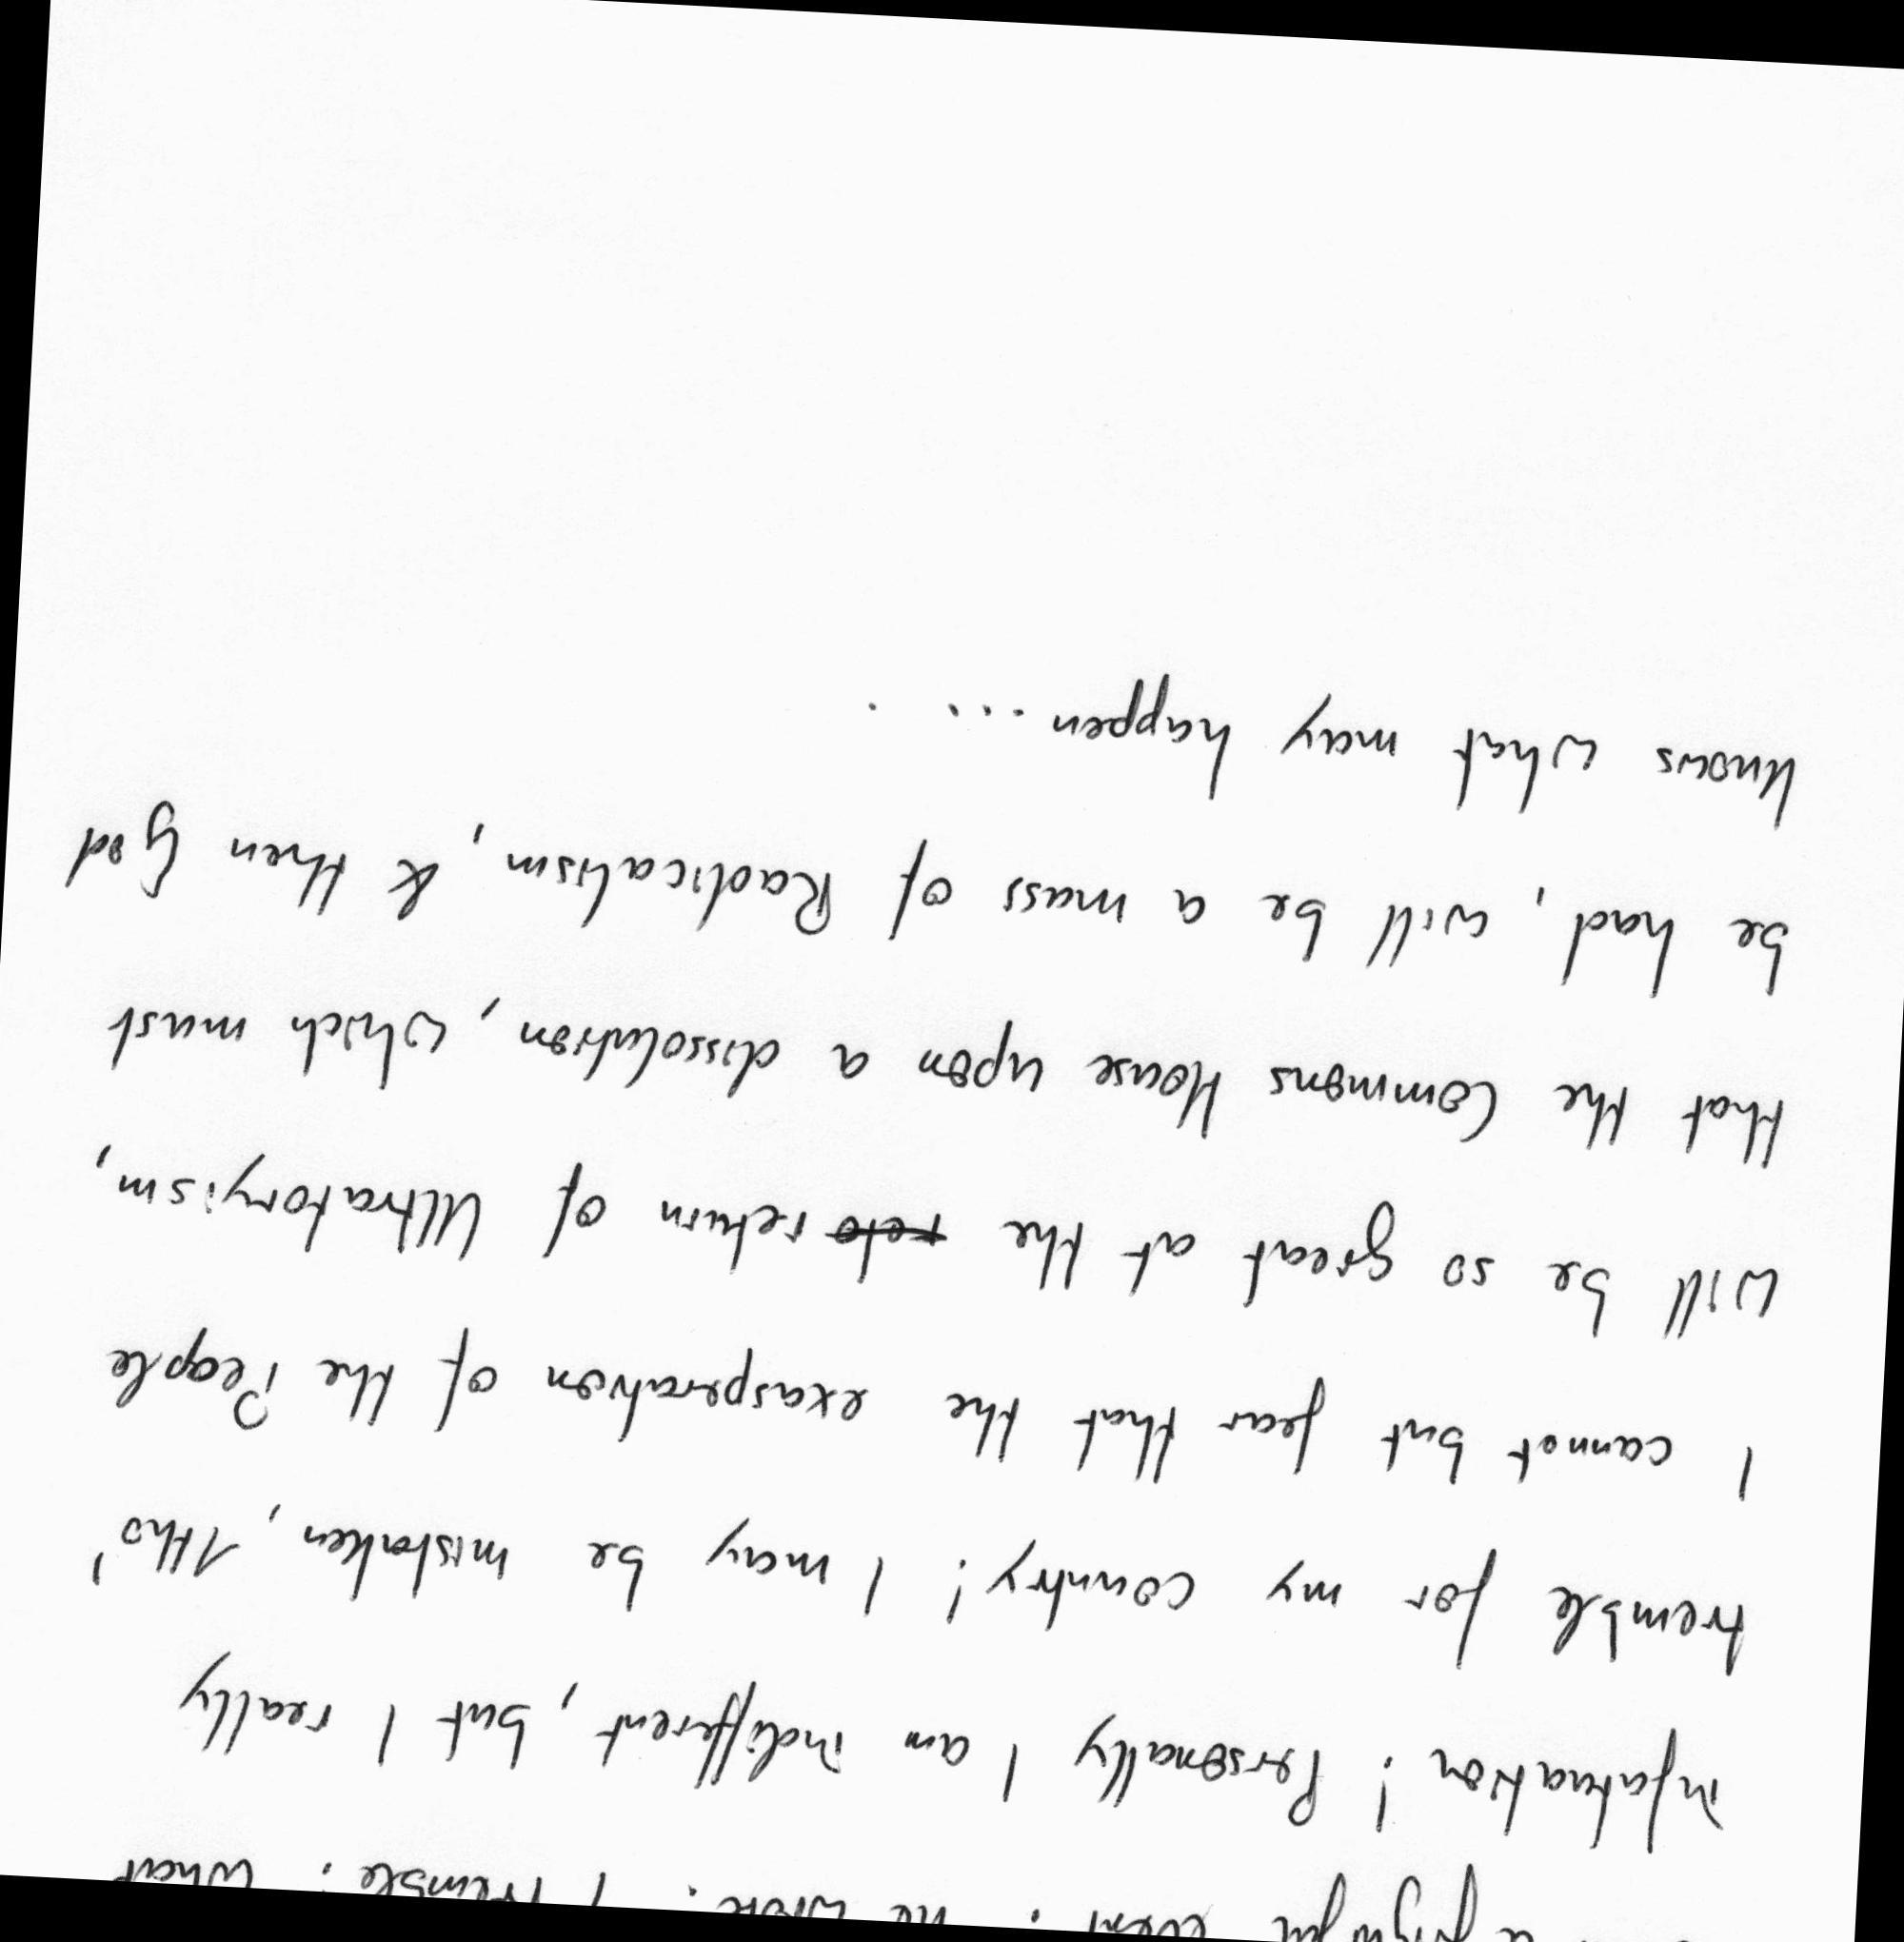 a frightful event! he wrote: I tremble! What
infatuation! Personally I am indifferent, but I really
tremble for my country! I may be mistaken, Altho'
I cannot but fear that the exasperation of the People
will be so great at the return of Ultratoryism,
that the Commons House upon a dissolution, which must
be had, will be a mass of Radicalism, & then God
knows what may happen ... .